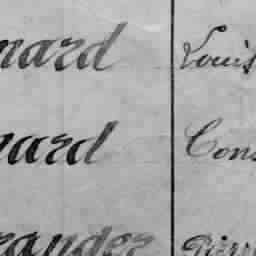 nard Louis
nard Cons
rander Pierr